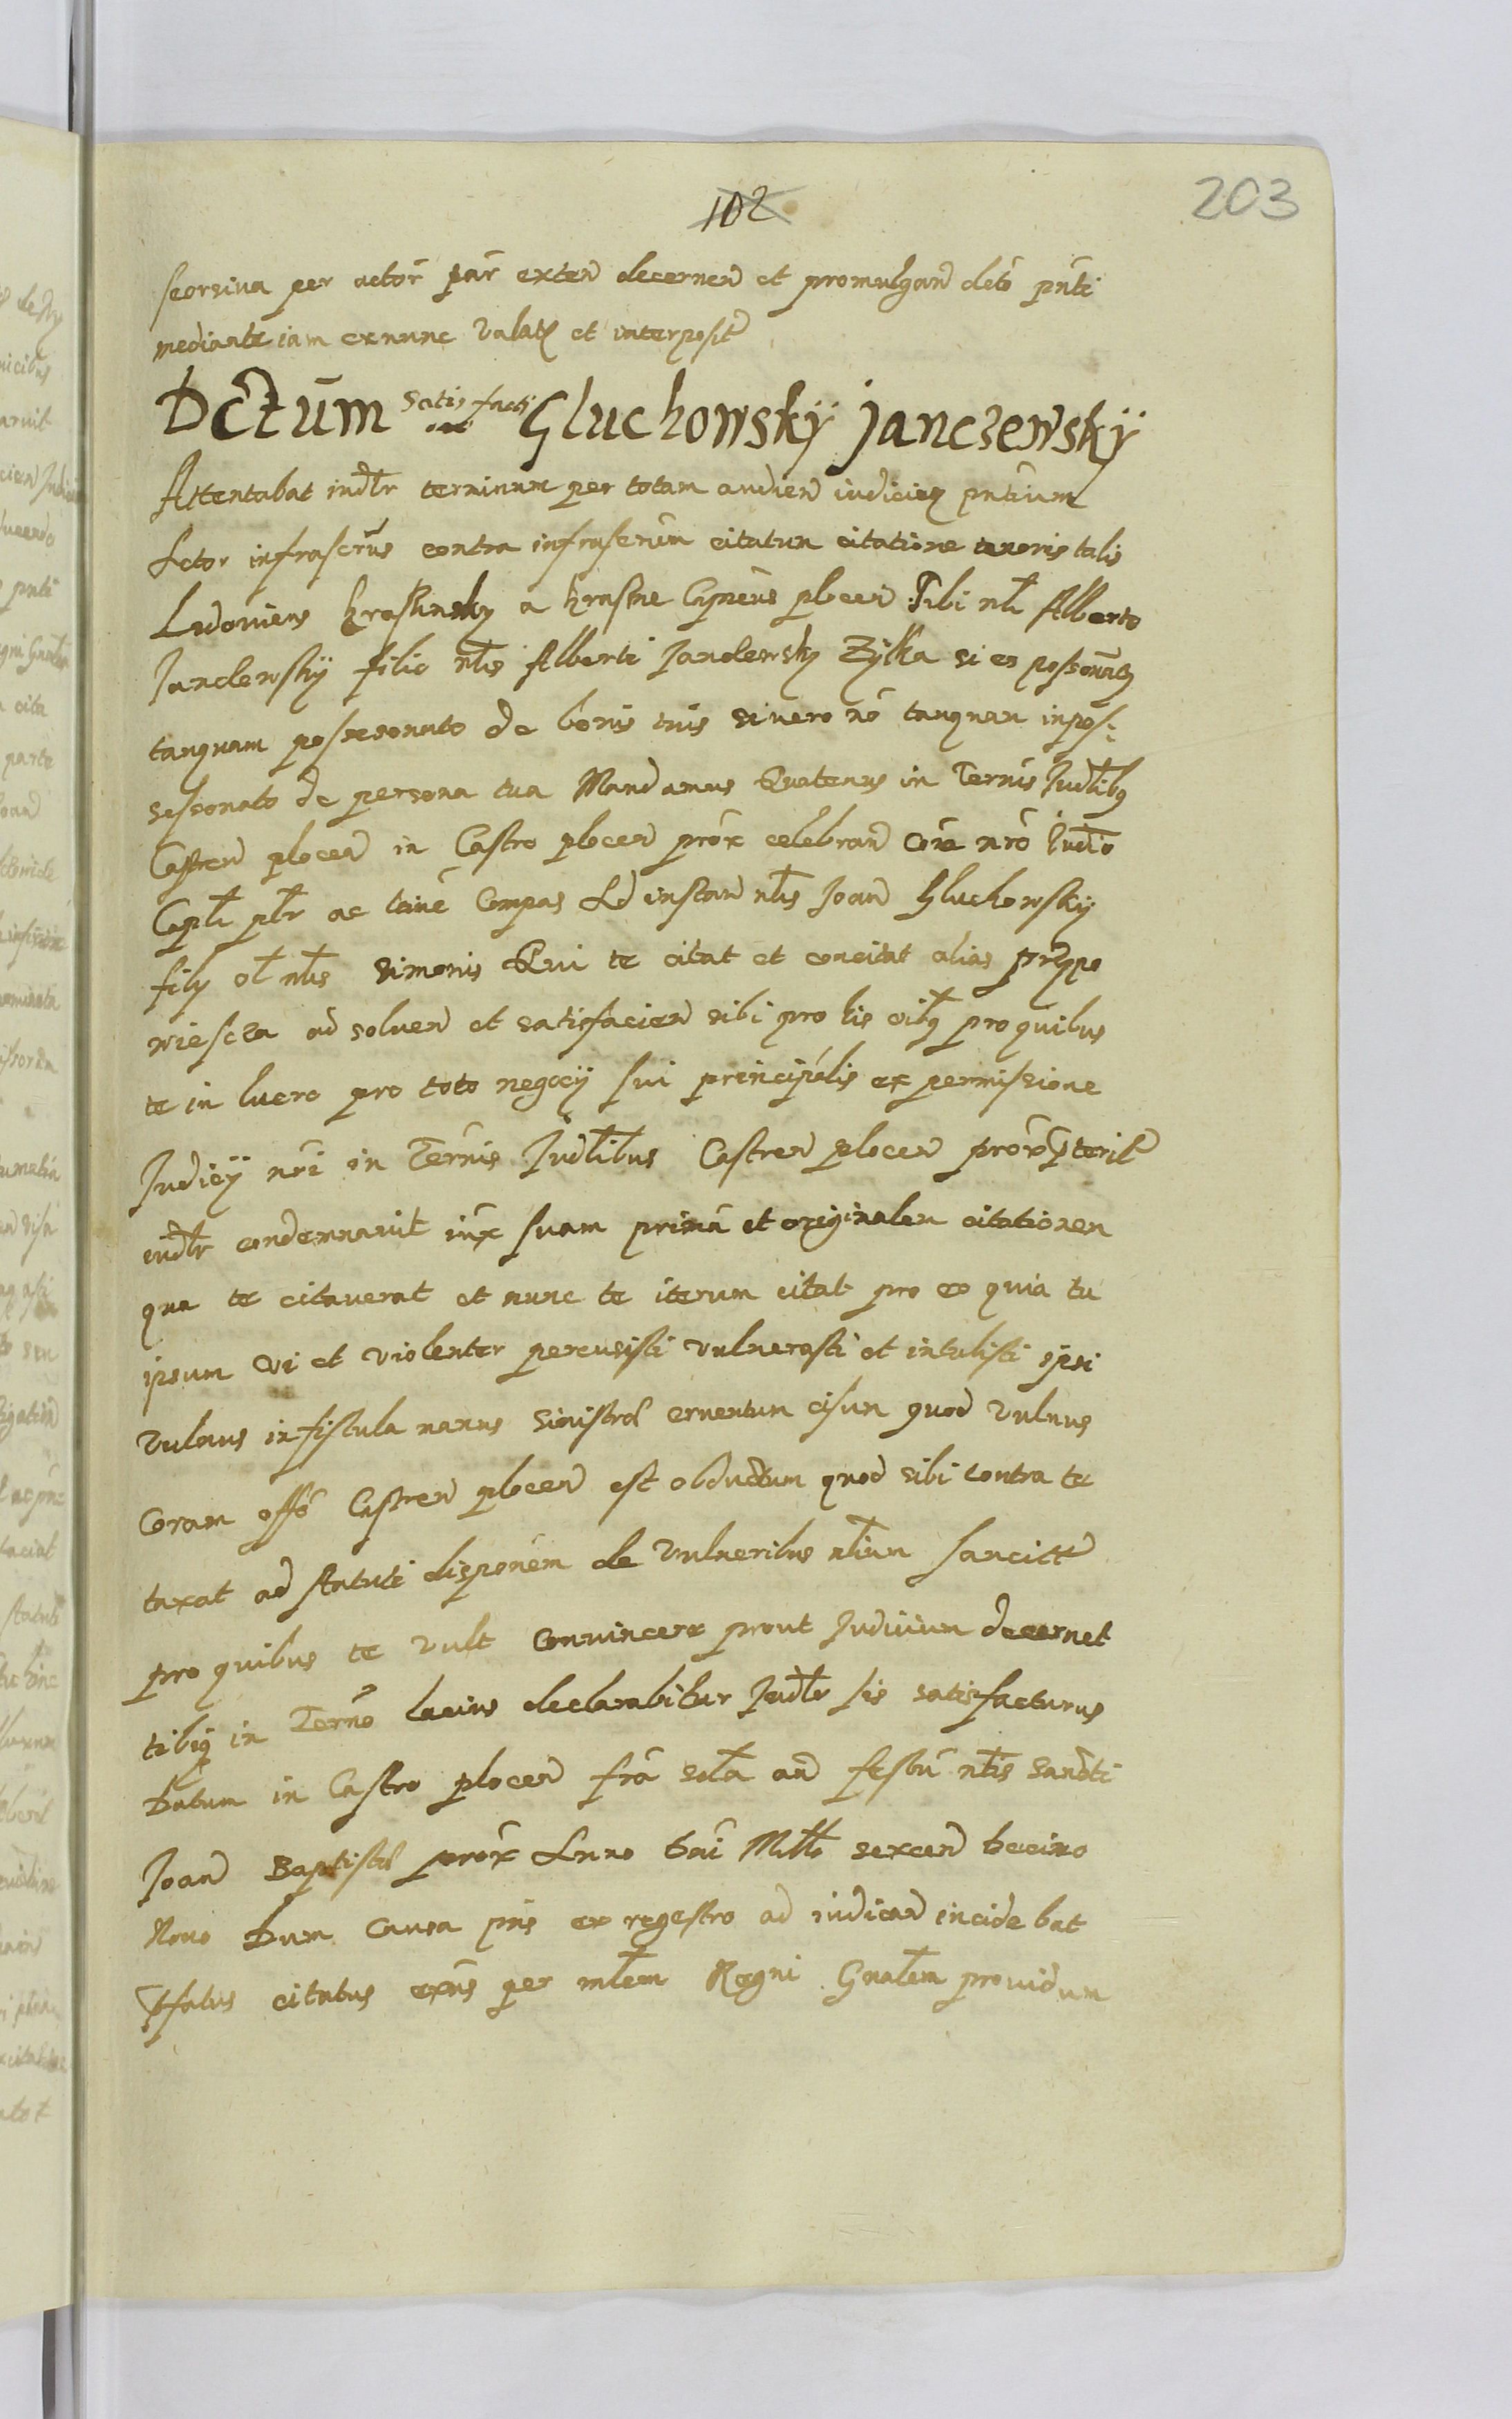 102
203
seorsiva per actor̃ par̃ exten̄ decernen̄ et promulgan̄ dctõ pñti
mediante iam exnunc valatẽ et interposit̃
Dctum satisfacti Gluchowskÿ Janczewskÿ
Attentabat iudłr terminum per totam audien̄ iudicioʒ pñtium
Actor infrascrũs contra infrascrũm citatum citatione tenoris talis
Ludovicus Krasinsky a Krasne Capneus plocen̄ Tibi nłi Alberto
Janclewskÿ filio nłis Alberti Janclewsky Zylka si es possõnatꝰ
tanquam possesionato de bonis tuis si vero nõ tanquam inpos-
sesionato de persona tua Mandamus Quatenus in Termĩs Judłibꝫ
Castren̄ plocen̄ in Castro plocen̄ prox̃ celebran̄ corã nrõ Judĩo
Capłi płr ac temẽ Compas Ad instan̄ nłis Joan̄ Gluchowsky
fily oł nłis Simonis Qui te citat et concitat alias przypo
wiescza ad soluen̄ et satisfacien̄ sibi pro his oĩbꝫ pro quibus
te in lucro pro toto negocÿ sui principalis ex permissione
Judicÿ nrĩ in Termĩs Judłibus Castren̄ plocen̄ prox̃ p̃terit̃
iudłr condemnavit iux̃ suam primã et originalem citationem
qua te citaverat et nunc te iterum citat pro eo quia tu
ipsum vi et violenter percusisti vulnerasti et intulisti ipsi
vulnus in fistula manus sinistræ cruentum cisum quod vulnus
Coram offõ Castren̄ plocen̄ est obductum quod sibi contra te
taxat ad statuti disponẽm de vulneribus nłium sancitt̃
pro quibus te vult convincere prout Judicium decernet
tibiq̨ in Termõ lacius declarabitur Judłr sis satisfacturus
Datum in Castro plocen̄ friã sctã an̄ festũ nłis Sancti
Joan̄ Baptistæ prox̃ Anno Dñi Millõ sexcen̄ Decimo
Nono Dum causa pñs ex regestro ad iudican̄ incidebat
P̃fatus citatus exñs per młem Regni Gnałem providum